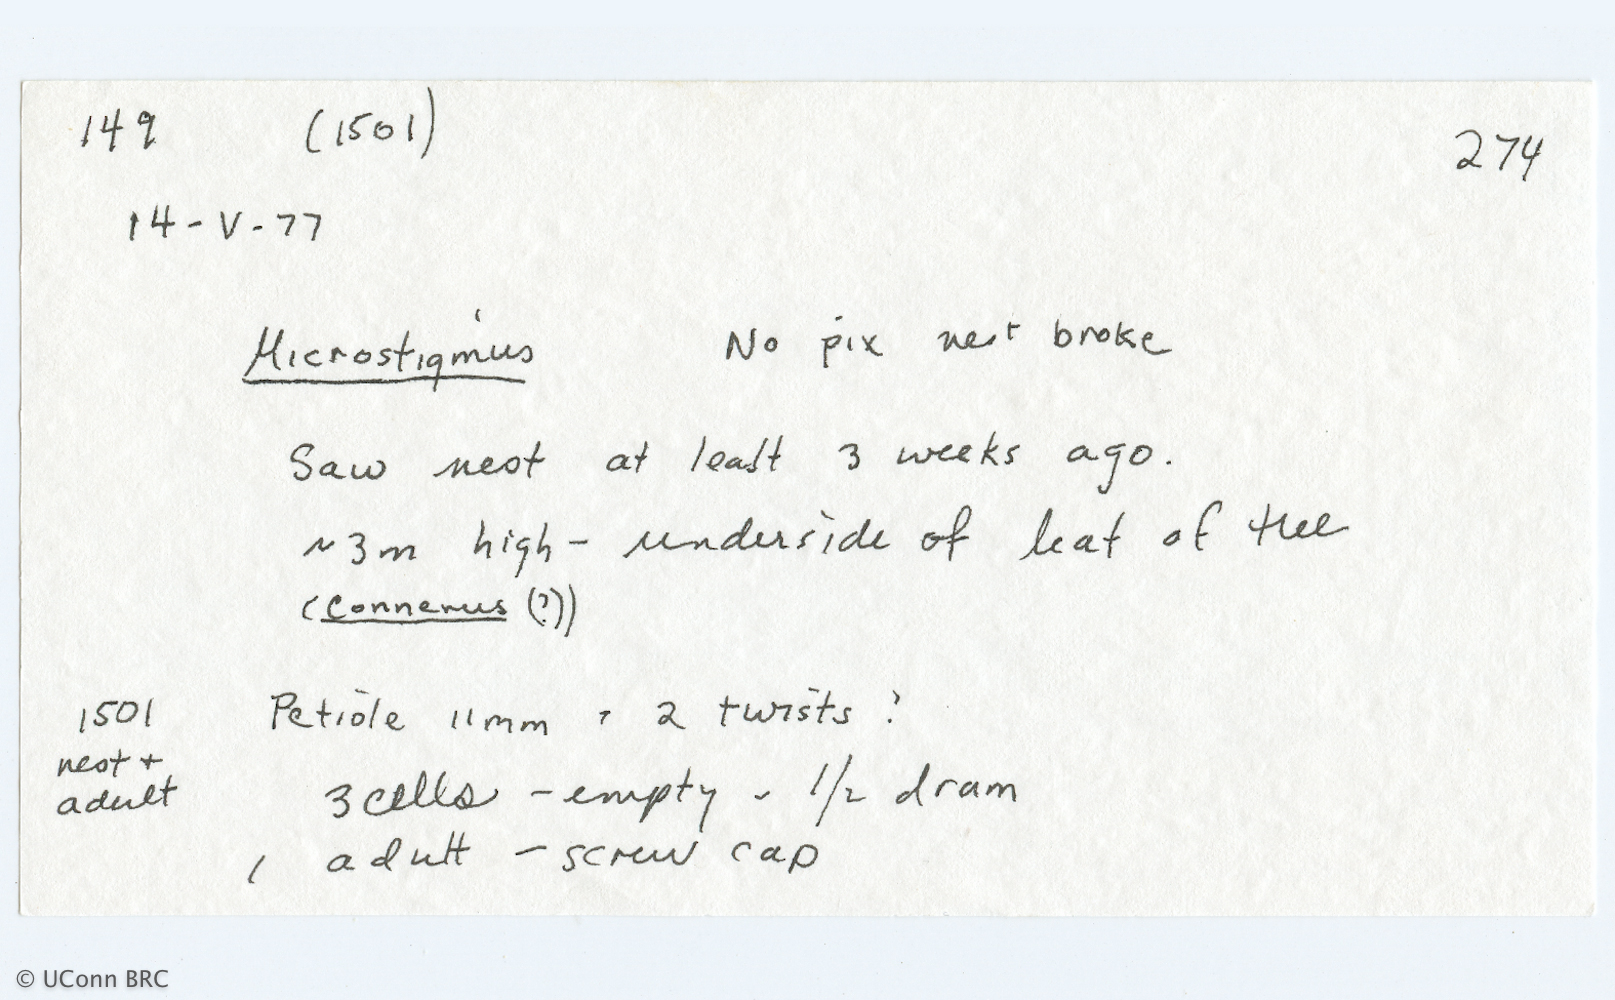 149 (1501) 274
14-V-77
Microstigmus No pix nest broke
Saw nest at least 3 weeks ago.
~3m high - underside of leaf of tree
(Connerus (?))
1501 Petiole 11mm, 2 twists?
nest +
adult 3 cells - empty - 1/2 dram
1 adult - screw cap
© UConn BRC